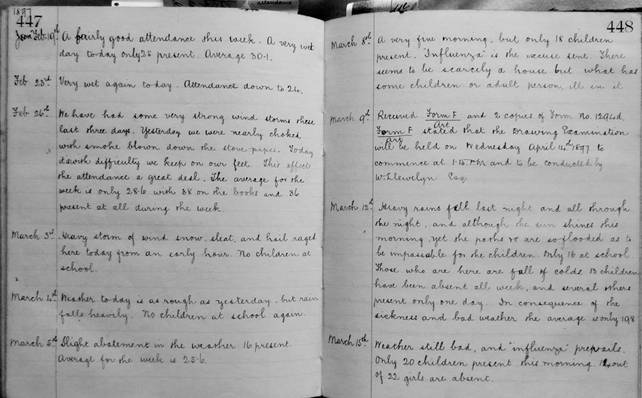 447
1897
Feb. 19th A fairly good attendance this week. A very wet
day today only 25 present. Average 30.1.
Feb 23rd Very wet again today. Attendance down to 24.
Feb 26th We have had some very strong wind storms these
last three days. Yesterday we were nearly choked
with smoke blown down the stove-pipes. Today
with difficulty we keep on our feet. This effect
the attendance a great deal. The average for the
week is only 28.6 with 38 on the books and 36
present at all during the week.
March 3rd Heavy storm of wind snow, sleat, and hail raged
here today from an early hour. No children at
school.
March 4th Weather today is as rough as yesterday but rain
falls heavily. No children at school again.
March 5th Slight abatement in the weather 16 present.
Average for the week is 25.6.
448
March 8th A very fine morning, but only 18 children
present. "Influenza" is the excuse sent. There
seems to be scarcely a house but what has
some children or adult person, ill in it
March 9th Received Form F and 2 copies of Form No. 129(d).
Art
Form F stated that the Drawing Examination
Art
will be held on Wednesday April 14th 1897 to
commence at 1.15 and to be conducted by
W. Llewelyn Esq.
March 12th Heavy rains fell last night and all through
the night, and although the sun shines this
morning, yet the paths are so flooded as to
be impassable for the children. Only 16 at school
Those who are here are full of colds. 13 children
have been absent all week, and several others
present only one day. In consequence of the
sickness and bad weather the average is only 19.8
March 15th Weather still bad, and "influenza" prevails.
Only 20 children present this morning. out
of 22 girls are absent.